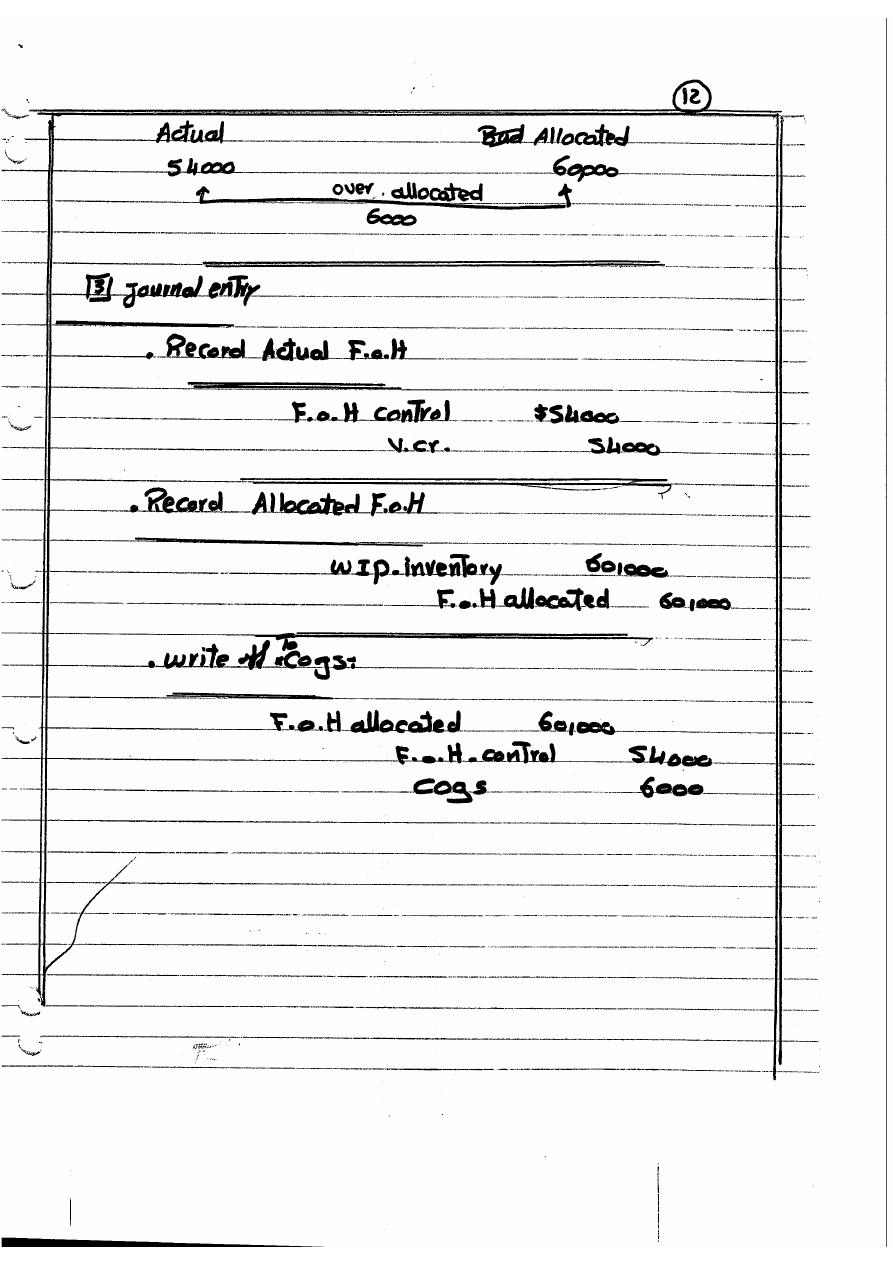 12
Actual Allocated
54000 60000
over . allocated
6000
3 Journal entry
. Record Actual F.o.H
F.o.H control $54000
V.cr. 54000
. Record Allocated F.o.H
WIP.inventory 60,000
F.o.H allocated 60,000
. write off To Cogs:
F.o.H allocated 60,000
F.o.H.control 54000
Cogs 6000